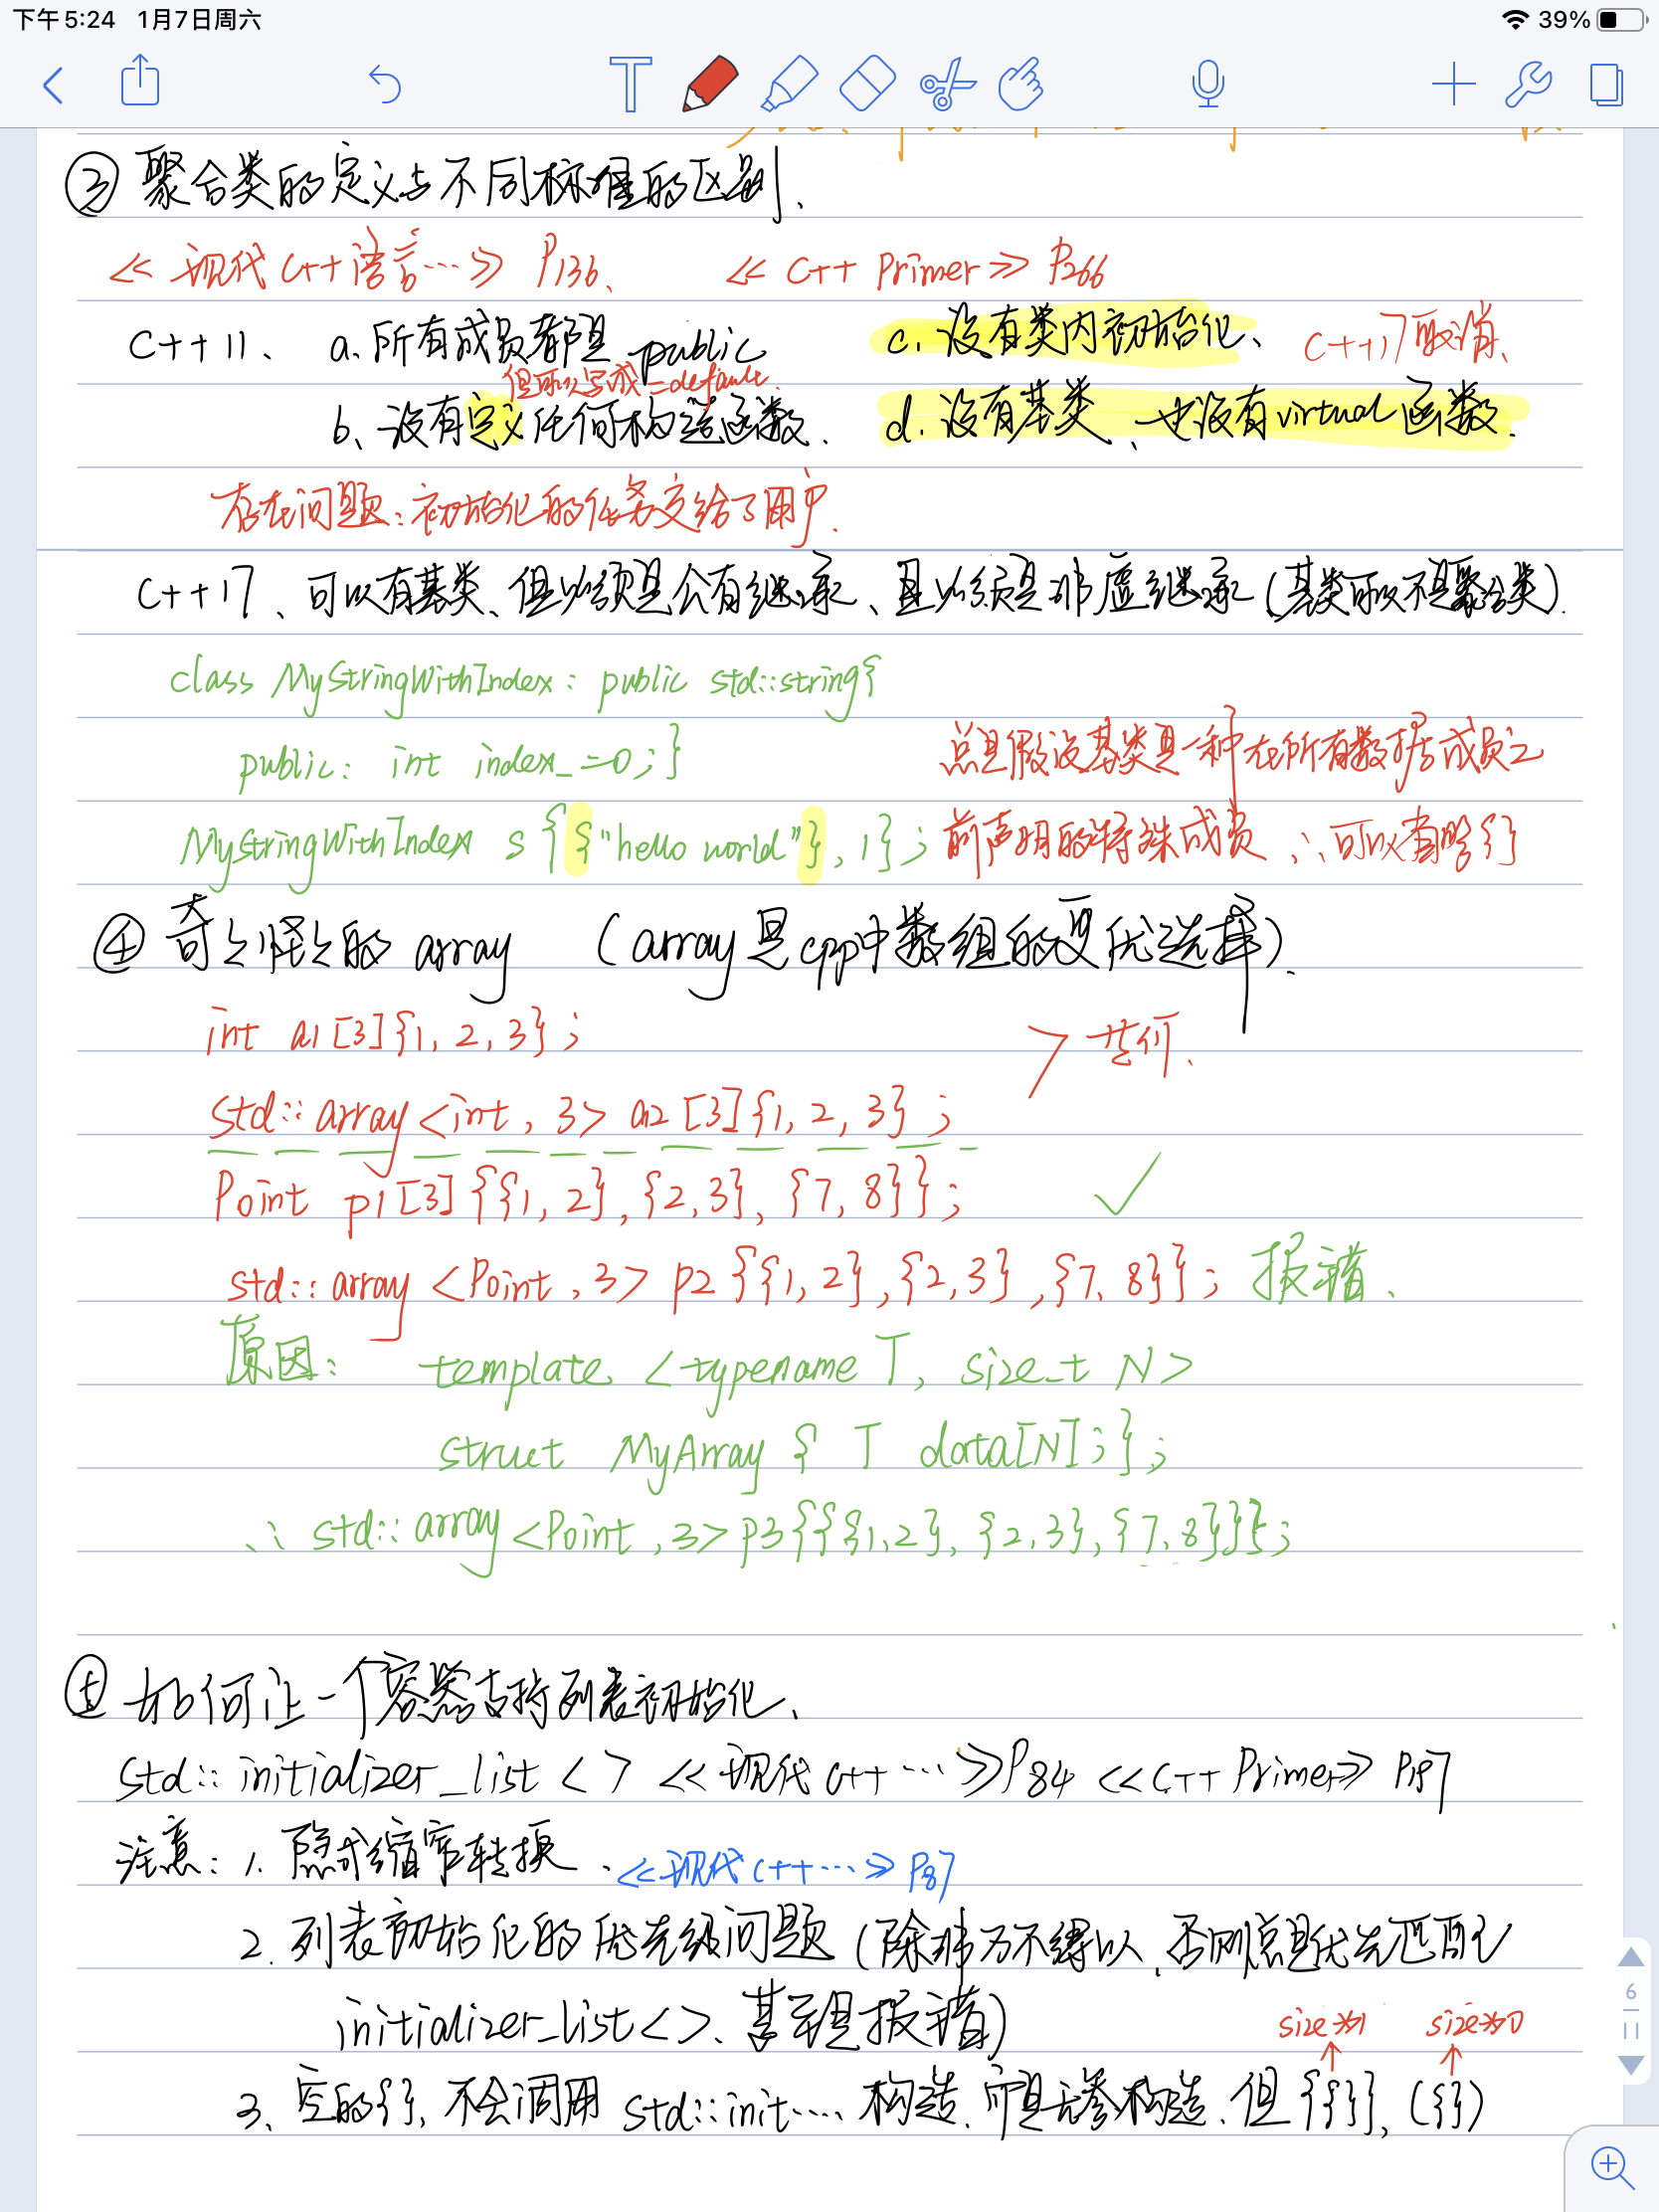 下午5:24 1月7日周六 39%
③ 聚合类的定义与不同标准的区别、
《现代C++语言…》 P136、 《C++ Primer》 P266
C++11、 a.所有成员都是 public c.没有类内初始化、 C++17取消、
但可以写成=default.
b、没有定义任何构造函数. d.没有基类、也没有virtual函数.
存在问题:初始化的任务交给了用户.
C++17、可以有基类、但必须是公有继承、且必须是非虚继承(基类可以不是聚合类).
class MyStringWithIndex: public std::string{
public: int index_=0;}
总是假设基类是一种在所有数据成员之
MyStringWithIndex s{{"hello world"},1};
前声明的特殊成员 ∴可以省略{}
④ 奇奇怪怪的 array (array是cpp中数组的更优选择).
int a1[3]{1,2,3};
> 等价.
std::array<int,3> a2[3]{1,2,3};
Point p1[3]{{1,2},{2,3},{7,8}}; ✓
std::array<Point,3> p2{{1,2},{2,3},{7,8}}; 报错、
原因: template <typename T, size_t N>
struct MyArray { T data[N];};
∴ std::array<Point,3>p3{{{1,2},{2,3},{7,8}}};
⑤ 如何让一个容器支持列表初始化、
std::initializer_list<> 《现代C++…》P84 《C++ Primer》 P197
注意:1.隐式缩窄转换、《现代C++…》P87
2.列表初始化的优先级问题(除非万不得以,否则总是优先匹配
initializer_list<>、甚至是报错)
size为1 size为0
3、空的{},不会调用 std::init…. 构造、而是无参构造、但{{}},({})
6
11